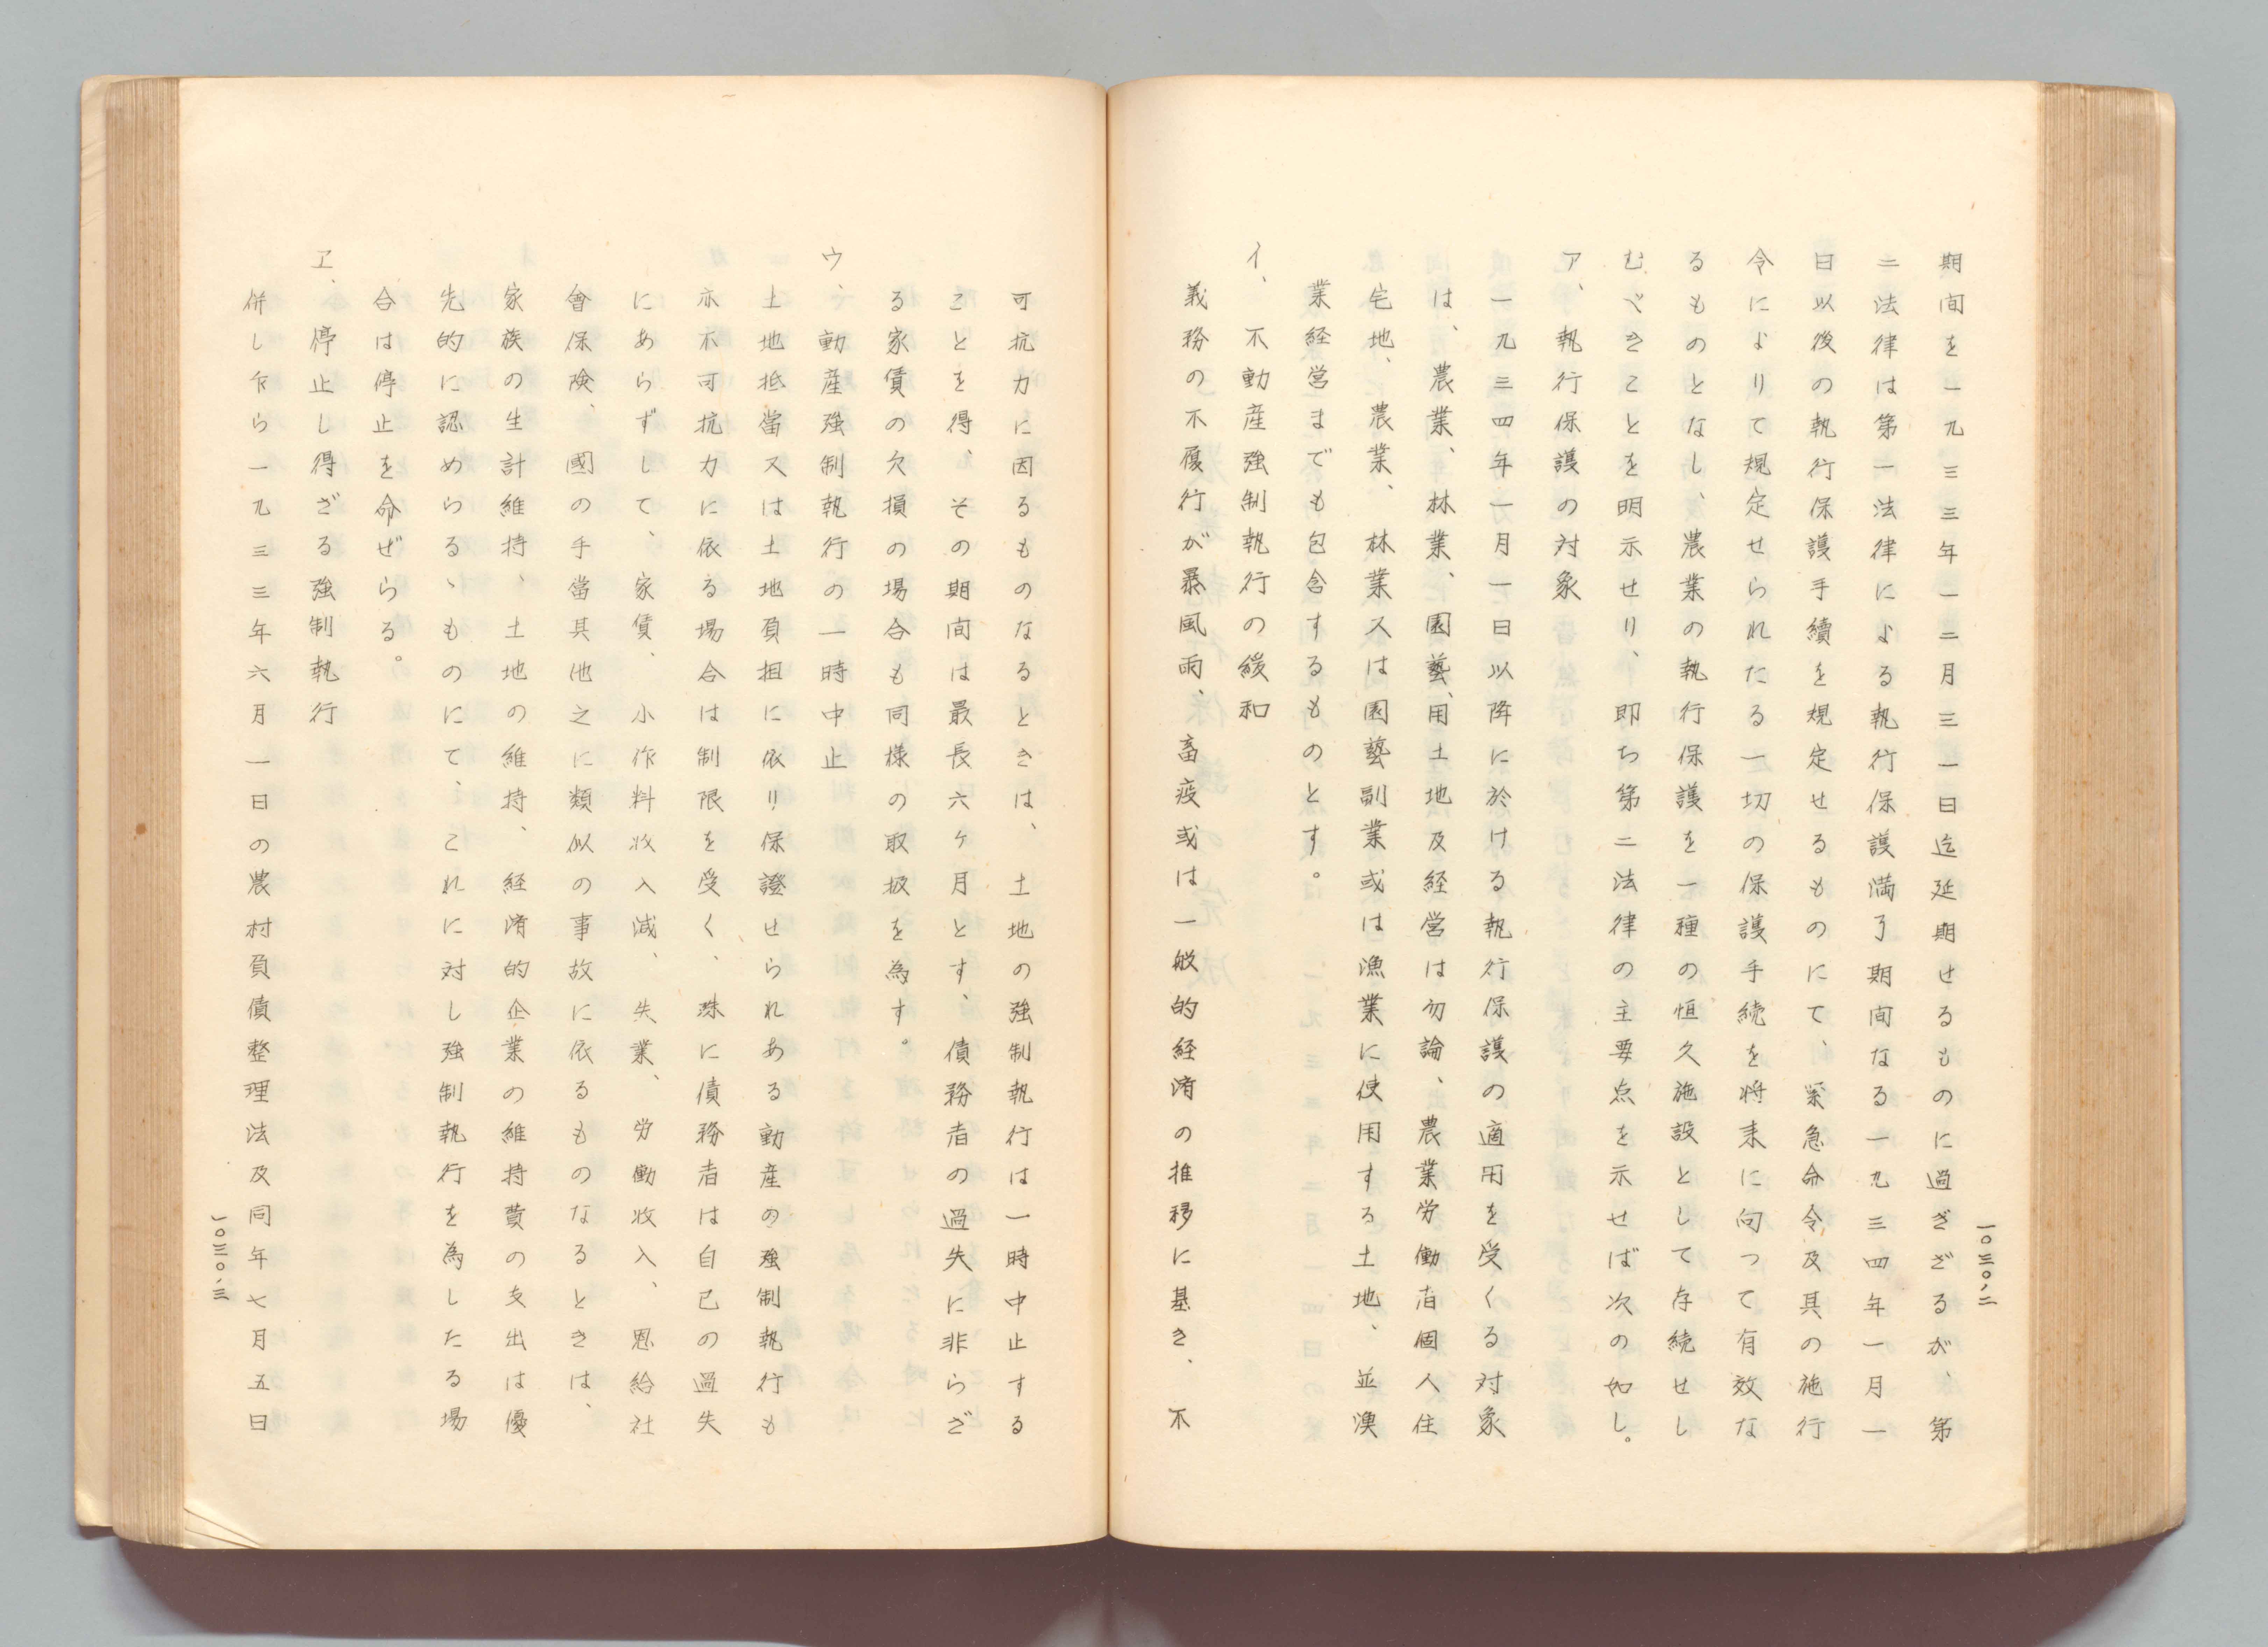 期间を一九三三年一二月三一日迄延期せるものに過ぎざるが、第
二法律は第一法律による執行保護満了期间なる一九三四年一月一
日以後の執行保護手續を規定せるものにて、緊急命令及其の施行
令によりて規定せられたる一切の保護手続を将来に向つて有效な
るものとなし、農業の執行保護を一種の恒久施設として存続せし
むべきことを明示せり、即ち第二法律の主要点を示せば次の如し。
ア、執行保護の対象
一九三四年一月一日以降に於ける執行保護の適用を受くる対象
は、農業、林業、園藝、用土地及経営は勿論、農業労働者個人住
宅地、農業、林業又は園藝副業或は漁業に使用する土地、並漁
業経営までも包含するものとす。
イ、不動産強制執行の緩和
義務の不履行が暴風雨、畜疫或は一般的経済の推移に基き、不
一〇三〇、二
可抗力に因るものなるときは、土地の強制執行は一時中止する
ことを得、その期间は最長六ヶ月とす、債務者の過失に非らざ
る家賃の欠損の場合も同様の取扱を為す。
ウ、動産強制執行の一時中止
土地抵當又は土地負担に依り保證せられある動産の強制執行も
亦不可抗力に依る場合は制限を受く、珠に債務者は自己の過失
にあらずして、家賃、小作料收入減、失業、労働收入、恩給社
會保険、國の手當其他之に類似の事故に依るものなるときは、
家族の生計維持、土地の維持、経済的企業の維持費の支出は優
先的に認めらるゝものにて、これに対し強制執行を為したる場
合は停止を命ぜらる。
ヱ、停止し得ざる強制執行
併し乍ら一九三三年六月一日の農村負債整理法及同年七月五日
一〇三〇、三